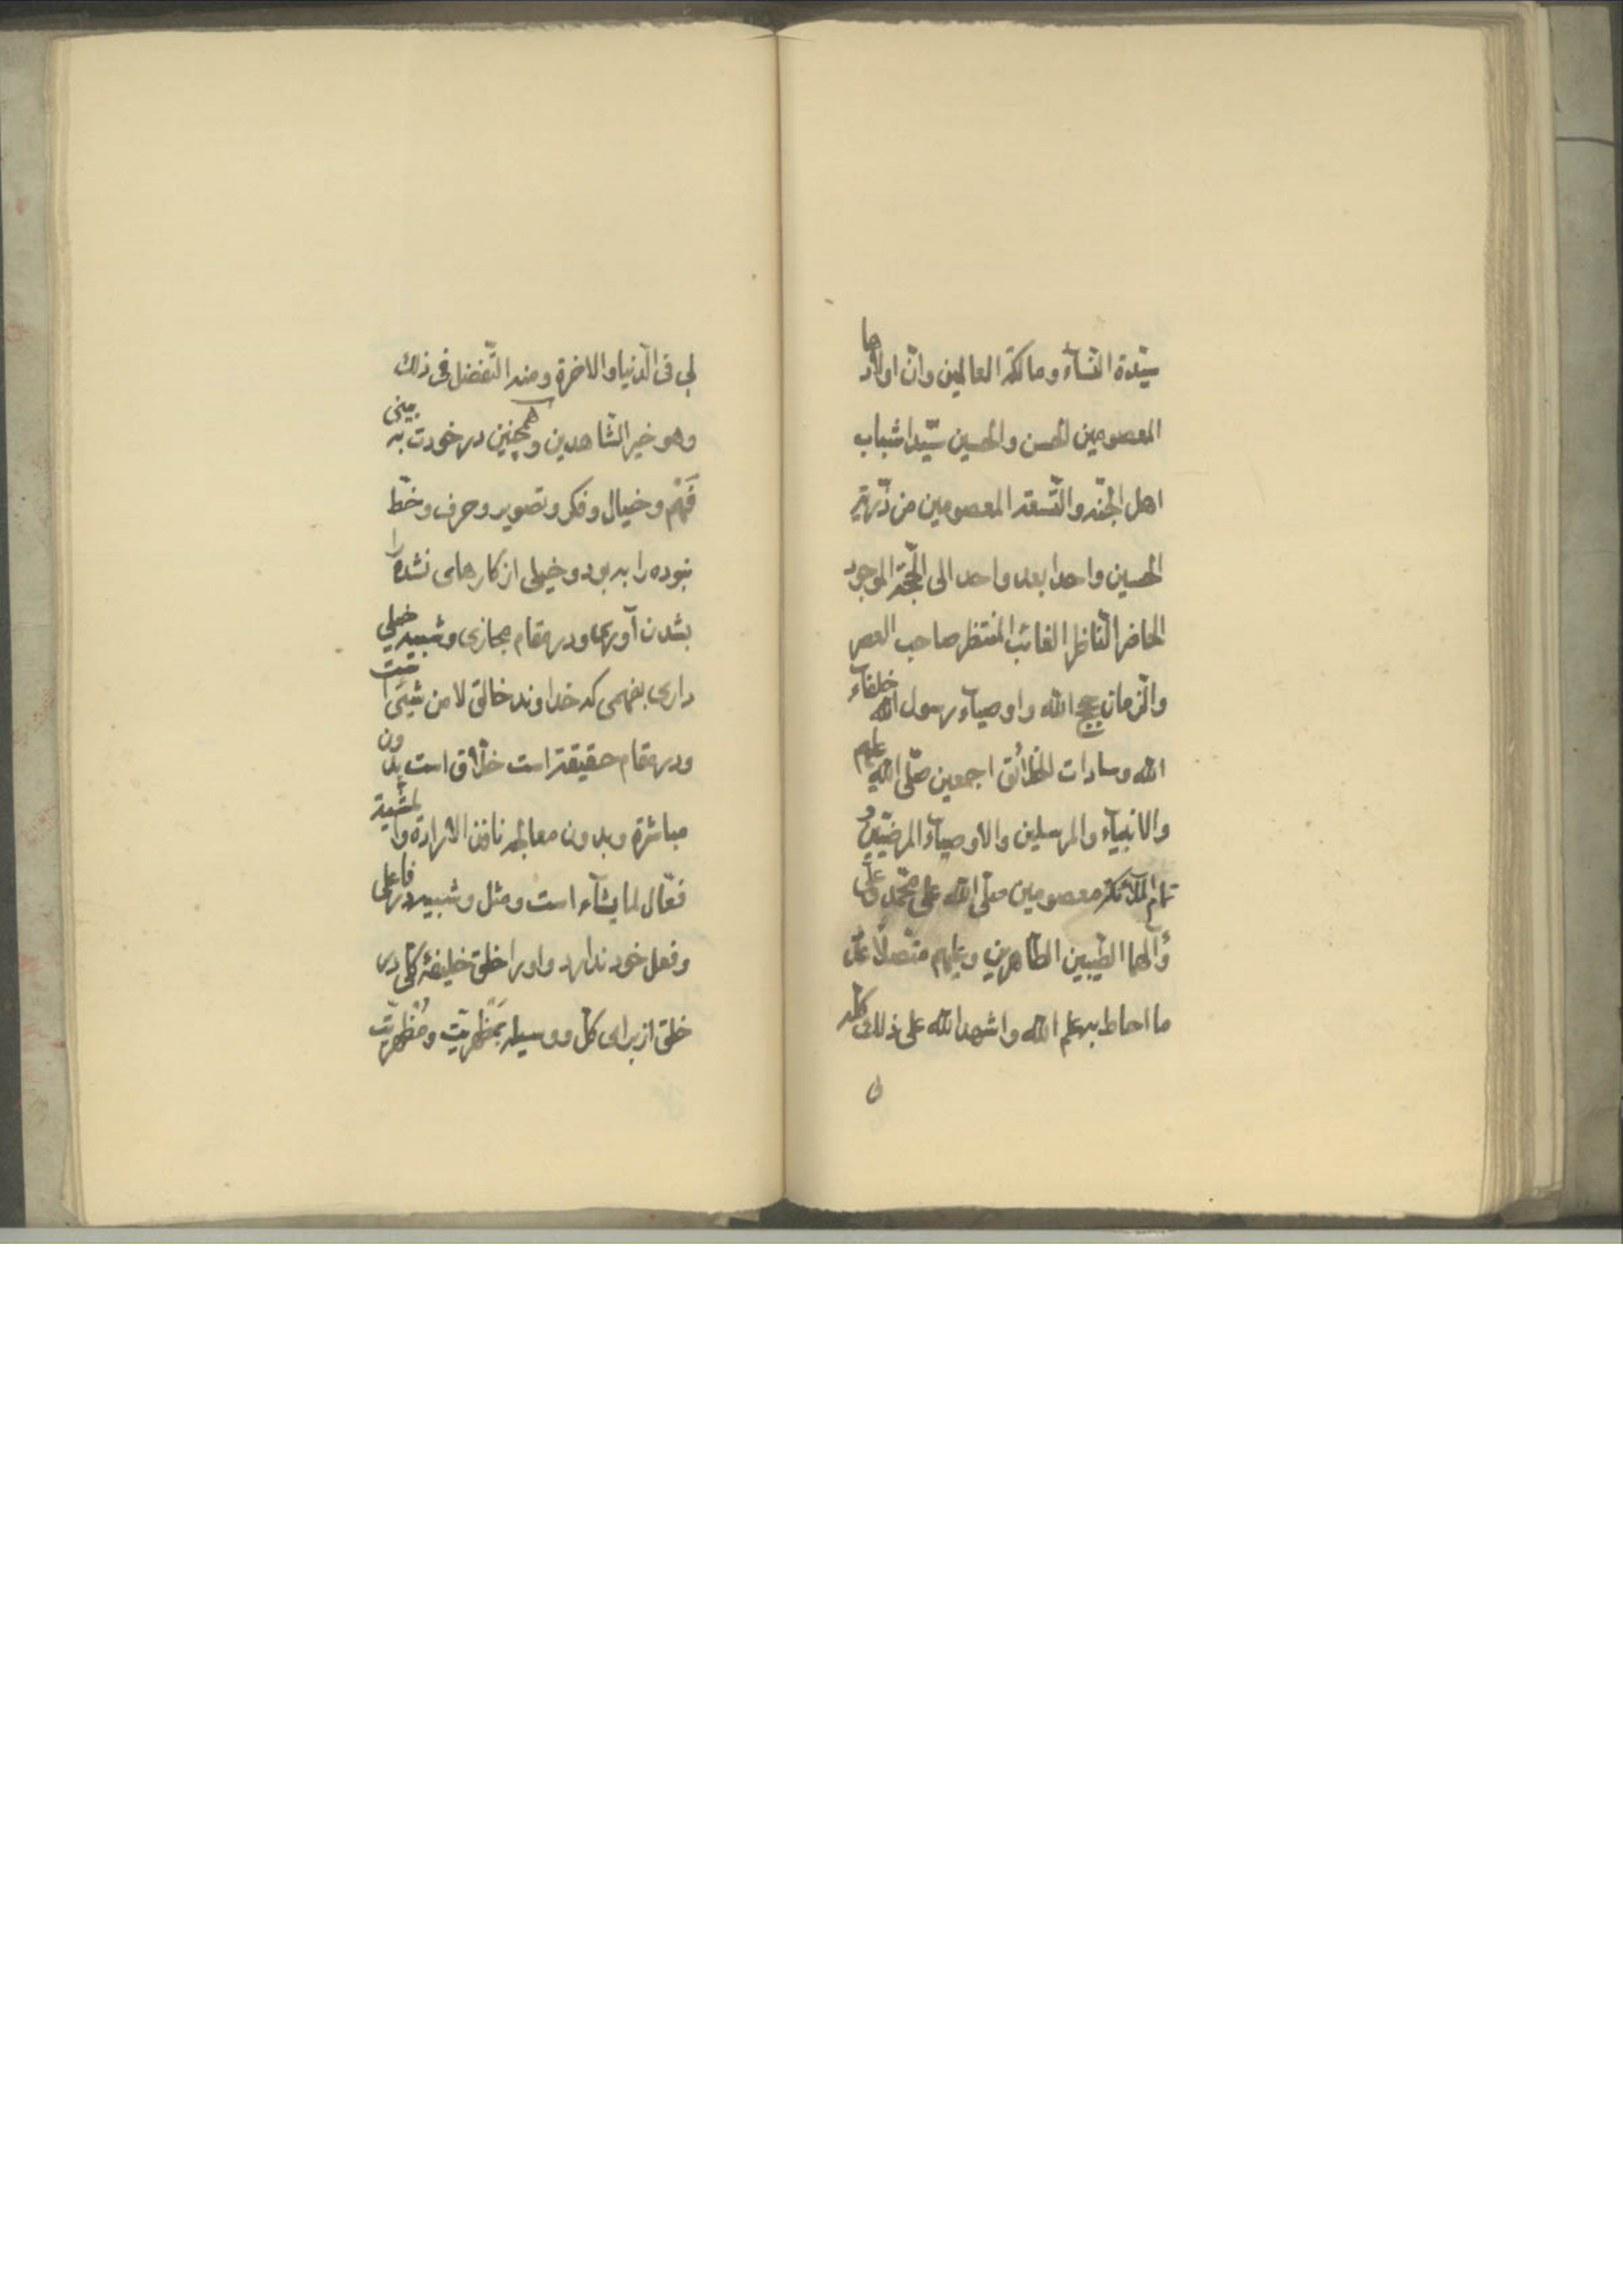 سیّدة النّسآء و مالکة العالمین وانّ اولادها
المعصومین الحسن والحسین سیّدا شباب
اهل الجنّه والتّسعة المعصومین من ذرّیة
الحسین واحدا بعد واحد الی الحجّة الموجود
الحاضر النّاظر الغائب المنتظر صاحب العصر
والزّمان حجج الله و اوصیآء رسول الله خلفآء
الله وسادات الخلائق اجمعین صلّی الله علیهم
والانبیآء والمرسلین والاوصیآء المرضیّین و
تمام الملآئکة معصومین صلّی الله علی محمّد وعلی
وآلهما الطیّبین الطّاهرین وعلیهم متّصلاً عدد
ما احاط به علم الله واشهد الله علی ذلک کلّه
لی
لی فی الدّنیا والاخرة ومنه التّفضل فی ذلک
وهو خیر الشّاهدین وهمچنین در خودت به بینی
فَهْم و خیال و فکر و تصویر و حرف و خطّ
نبوده را به بود و خیلی از کارهای نشده را
بشدن آوری و در مقام مجازی و شبیه خیلی
داری بفهمی که خداوند خالق لا من شیئی است
ودر مقام حقیقة است خلّاق است بدون
مباشرة و بدون معالجه نافذ الارادة والمشیة
فعّال لما یشآء است و مثل و شبیه در فاعلی
و فعل خود ندارد و اورا خلق خلیفهٔ کلّی در
خلق از برای کلّ و وسیله بمَظهریّت و مُظهریّت